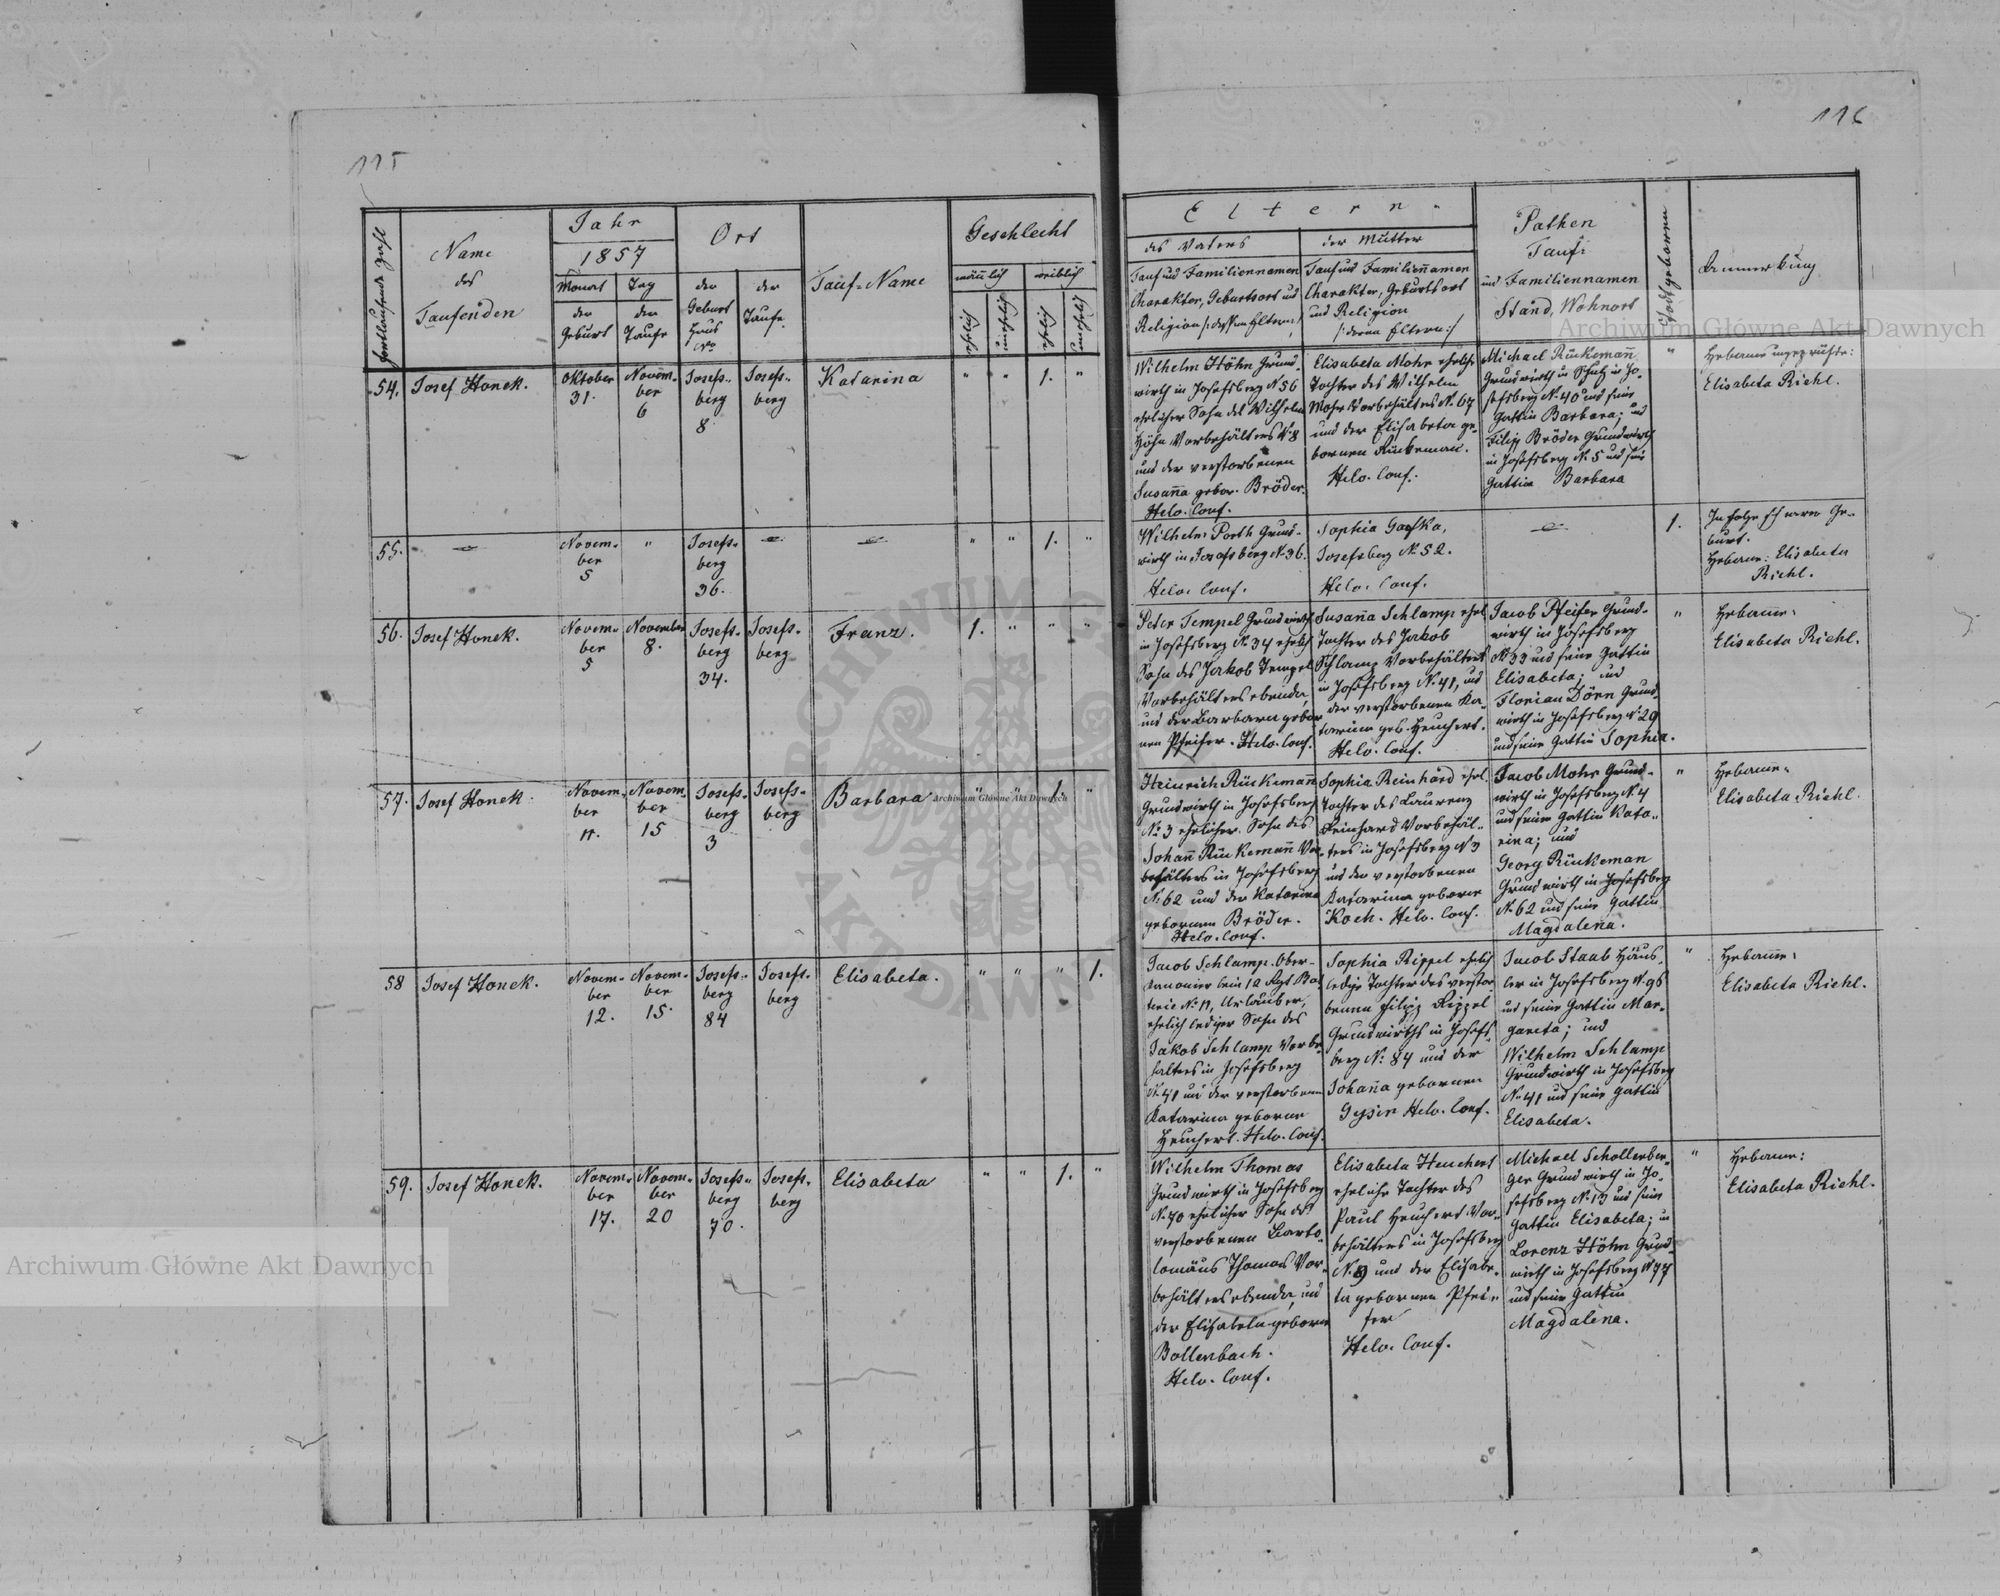 115
116
Fortlaufende Zahl
Name
des
Taufenden
Jahr
1857
Monat
der
Geburt
Tag
der
Taufe
Ort
der
Geburt
Haus
No
der
Taufe
Tauf-Name
Geschlecht
männlich
weiblich
ehelich
unehelich
ehelich
unehelich
Eltern
des Vaters
Tauf und Familiennamen
Charakter, Geburtsort und
Religion /:dessen Eltern:/
der Mutter
Tauf und Familiennamen
Charakter, Geburtsort
und Religion
/:deren Eltern:/
Pathen
Tauf
und Familiennamen
Stand, Wohnort
Todtgeboren
Anmerkung
54.
Josef Honek.
Oktober
31.
Novem-
ber
6
Josefs-
berg
8
Josefs-
berg
Katarina
" " 1. "
Wilhelm Höhn Grund-
wirth in Josefsberg N 56
ehelicher Sohn des Wilhelm
Höhn Vorbehälters N. 8
und der verstorbenen
Susanna gebor. Bröder.
Helv. Conf.
Elisabeta Mohr eheliche
Tochter des Wilhelm
Mohr Vorbehälters N. 67
und der Elisabeta ge-
bornen Rückeman.
Helv. Conf.
Michael Rückemann
Grundwirth u Schulz in Jo-
sefsberg N. 40 und seine
Gattin Barbara; und
Filipp Bröder Grundwirth
in Josefsberg N. 5 und seine
Gattin Barbara
"
Hebame ungeprüfte:
Elisabeta Riehl.
55.
Novem-
ber
5
"
Josefs-
berg
36.
" " 1. "
Wilhelm Porth Grund-
wirth in Josefsberg N. 36.
Helv. Conf.
Sophia
Josefsberg N. 52.
Helv. Conf.
1.
In folge schwerer Ge-
burt.
Hebame: Elisabeta
Riehl.
56.
Josef Honek.
Novem-
ber
5
November
8.
Josefs-
berg
34.
Josefs-
berg
Franz.
1. " " "
Peter Tempel Grundwirth
in Josefsberg N. 34 ehelich
Sohn des Jakob Tempel
Vorbehälters ebenda,
und der Barbara gebor
nen Pfeifer. Helv. Conf.
Susanna Schlamp ehel
Tochter des Jakob
Schlamp Vorbehälters
in Josefsberg N. 41, und
der verstorbenen Ka-
tarina geb. Heuchert.
Helv. Conf.
Jacob Pfeifer Grund-
wirth in Josefsberg
N. 33 und seine Gattin
Elisabeta; und
Florian Dörn Grund-
wirth in Josefsberg N. 29
und seine Gattin Sophia.
"
Hebame:
Elisabeta Riehl.
57.
Josef Honek.
Novem-
ber
11.
Novem
ber
15
Josefs-
berg
3
Josefs-
berg
Barbara
" " 1. "
Heinrich Rückemann
Grundwirth in Josefsberg
No. 3 ehelicher Sohn des
Johann Rückemann Vor-
behälters in Josefsberg
N. 62 und der Katarina
gebornen Bröder.
Helv. Conf.
Sophia Reinhard ehel.
Tochter des Laurenz
Reinhard Vorbehäl-
ters in Josefsberg N 3
und der verstorbenen
Katarina geborne
Koch. Helv. Conf.
Jacob Mohr Grund-
wirth in Josefsberg N. 4
und seine Gattin Kata-
rina; und
Georg Rückeman
Grundwirth in Josefsberg
N. 62 und seine Gattin
Magdalena.
"
Hebame:
Elisabeta Riehl.
58
Josef Honek.
Novem-
ber
12.
Novem-
ber
15.
Josefs-
berg
84
Josefs-
berg
Elisabeta.
" " " 1.
Jacob Schlamp. Ober-
kanonier beim 12 Regt Bat
terie No. 11, Urlauber,
ehelich lediger Sohn des
Jakob Schlamp Vorbe-
hälters in Josefsberg
N. 41 und der verstorbenen
Katarina geborne
Heuchert. Helv. Conf.
Sophia Rippel ehelich
ledige Tochter des verstor
benen Filipp Rippel
Grundwirths in Josefs-
berg No. 84 und der
Johanna gebornen
Gysin Helv. Conf.
Jacob Staab Häus-
ler in Josefsberg N. 96
und seine Gattin Mar-
gareta; und
Wilhelm Schlamp
Grundwirth in Josefsberg
No 41 und seine Gattin
Elisabeta.
"
Hebame:
Elisabeta Riehl.
59.
Josef Honek.
Novem-
ber
17.
Novem-
ber
20
Josefs-
berg
70.
Josefs-
berg
Elisabeta
" " 1. "
Wilhelm Thomas
Grundwirth in Josefsberg
N. 70 ehelicher Sohn des
verstorbenen Barto-
lomäus Thomas Vor-
behälters ebenda, und
der Elisabeta geborne
Bollenbach.
Helv. Conf.
Elisabeta Heuchert
eheliche Tochter des
Paul Heuchert Vor-
behälters in Josefsberg
N. 9 und der Elisabe-
ta gebornen Pfei-
fer
Helv. Conf.
Michael Schollenber-
ger Grundwirth in Jo-
sefsberg N. 13 und seine
Gattin Elisabeta; u
Lorenz Höhn Grund-
wirth in Josefsberg N 77
und seine Gattin
Magdalena.
"
Hebame:
Elisabeta Riehl.
Archiwum Główne Akt Dawnych
Archiwum Główne Akt Dawnych
Archiwum Główne Akt Dawnych
ARCHIWUM
AKT DAWNYCH